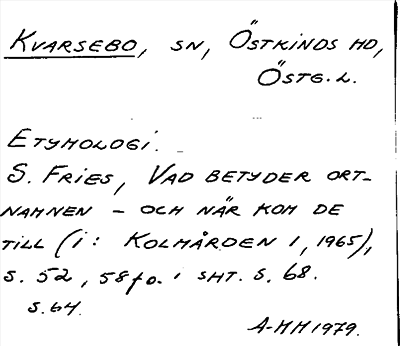 KVARSEBO, SN, ÖSTKINDS HD,
ÖSTG.L.
ETYMOLOGI.
S. FRIES, VAD BETYDER ORT-
NAMNEN - OCH NÄR KOM DE
TILL (i: KOLMÅRDEN 1, 1965),
S. 52, 58 fo. i SHT. S. 68.
S. 64.
A-MH 1979.